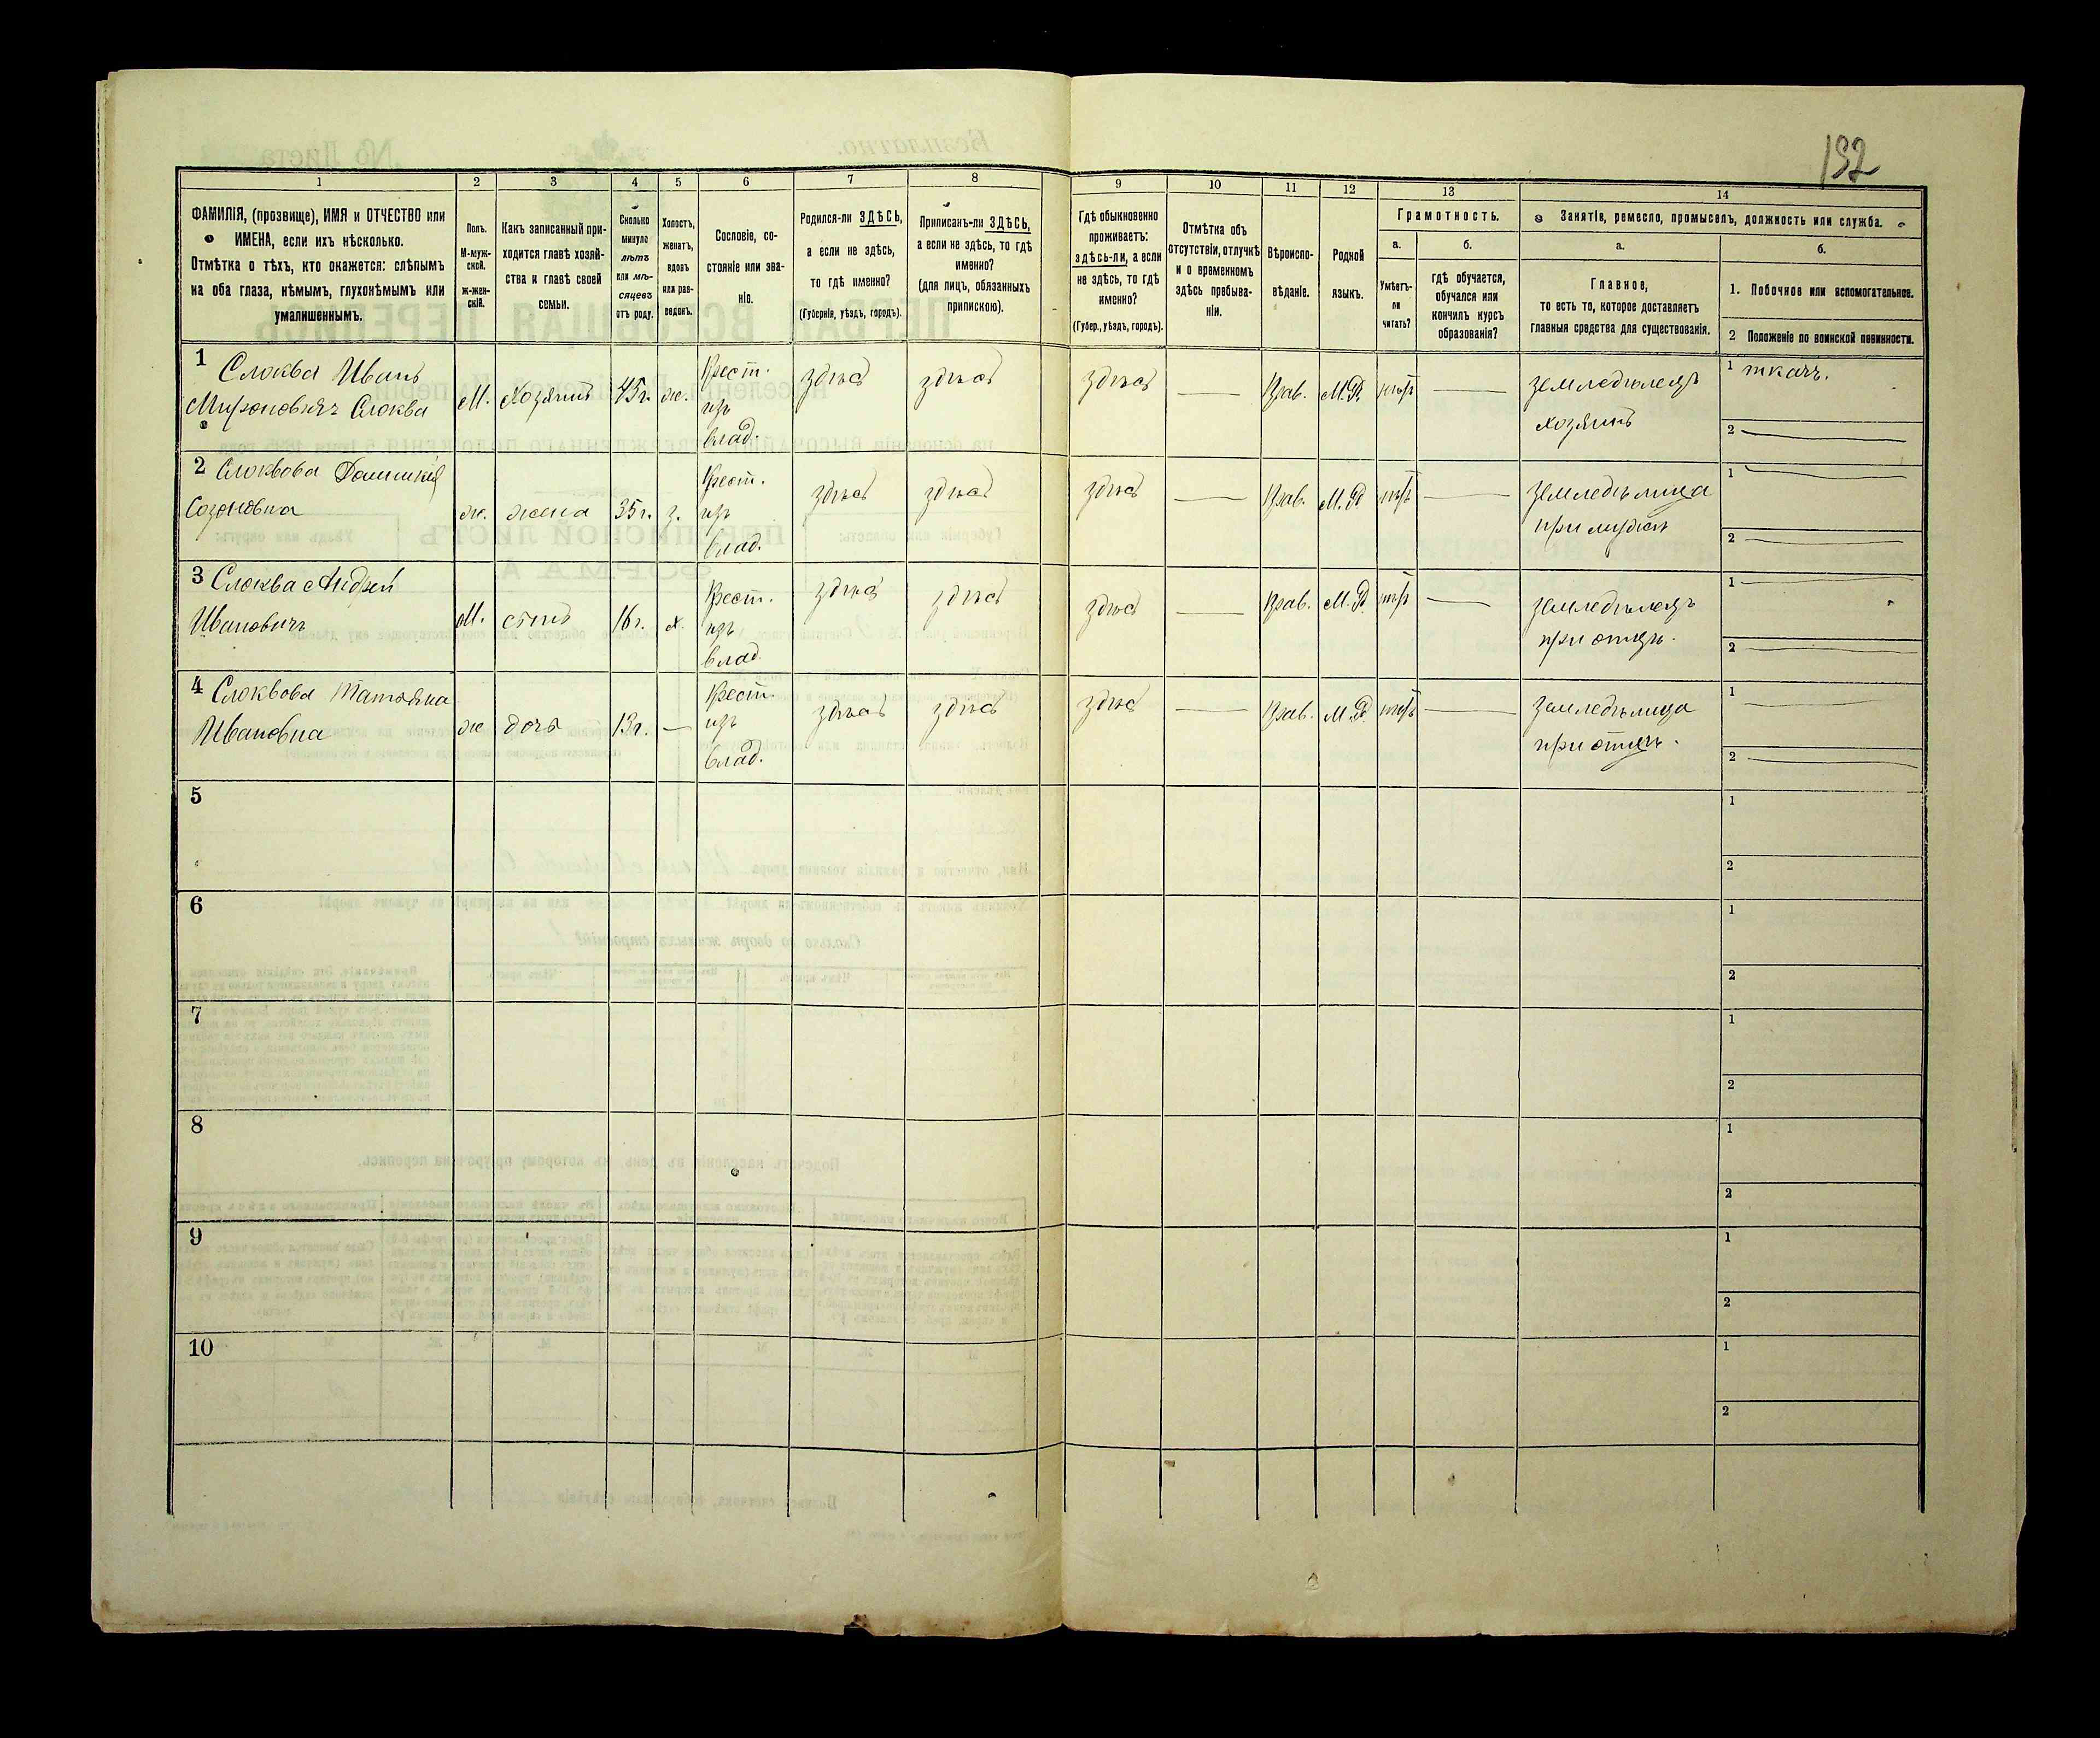 192
1
2
3
4
5
6
7
8
9
10
11
12
13
14
ФАМИЛІЯ, (прозвище), ИМЯ и ОТЧЕСТВО или
ИМЕНА, если ихъ нѣсколько.
Отмѣтка о тѣхъ, кто окажется: слѣпымъ
на оба глаза, нѣмымъ, глухонѣмымъ или
умалишеннымъ.
Полъ.
М-муж-
ской.
ж-жен-
скій.
Какъ записанный при-
ходится главѣ хозяй-
ства и главѣ своей
семьи.
Сколько
минуло
лѣтъ
или мѣ-
сяцевъ
отъ роду.
Холостъ,
женатъ,
вдовъ
или раз-
веденъ.
Сословіе, со-
стояніе или зва-
ніе.
Родился-ли ЗДѢСЬ,
а если не здѣсь,
то гдѣ именно?
(Губернія, уѣздъ, городъ).
Приписанъ-ли ЗДѢСЬ,
а если не здѣсь, то гдѣ
именно?
(для лицъ, обязанныхъ
припискою).
Гдѣ обыкновенно
проживаетъ:
здѣсь-ли, а если
не здѣсь, то гдѣ
именно?
(Губер., уѣздъ, городъ).
Отмѣтка объ
отсутствіи, отлучкѣ
и о временномъ
здѣсь пребыва-
ніи.
Вѣроиспо-
вѣданіе.
Родной
языкъ.
Грамотность.
а.
б.
Умѣетъ-
ли
читать?
гдѣ обучается,
обучался или
кончилъ курсъ
образованія?
Занятіе, ремесло, промыселъ, должность или служба.
а.
б.
Главное,
то есть то, которое доставляетъ
главныя средства для существованія.
1. Побочное или вспомогательное.
2 Положеніе по воинской повинности.
1 Слюква Иванъ
Мироновичъ Слюква
М.
Хозяинъ
45 г.
ж.
Крест.
изъ
влад.
здѣсь
здѣсь
здѣсь
—
Прав.
М.Р.
нѣтъ
—
земледѣлецъ
хозяинъ
1 ткачъ.
2 —
2 Слюквова
Созоновна
ж.
жена
35 г.
з.
Крест.
изъ
влад.
здѣсь
здѣсь
здѣсь
—
Прав.
М.Р.
нѣтъ
—
земледѣлица
при мужѣ
1 —
2 —
3 Слюква Андрей
Ивановичъ
М.
сынъ
16 г.
х.
Крест.
изъ
влад.
здѣсь
здѣсь
здѣсь
—
Прав.
М.Р.
нѣтъ
—
земледѣлецъ
при отцѣ.
1 —
2 —
4 Слюквова Татьяна
Ивановна
ж
дочь
13 г.
—
Крест.
изъ
влад.
здѣсь
здѣсь
здѣсь
—
Прав.
М.Р.
нѣтъ
—
земледѣлица
при отцѣ.
1 —
2 —
5
1
2
6
1
2
7
1
2
8
1
2
9
1
2
10
1
2